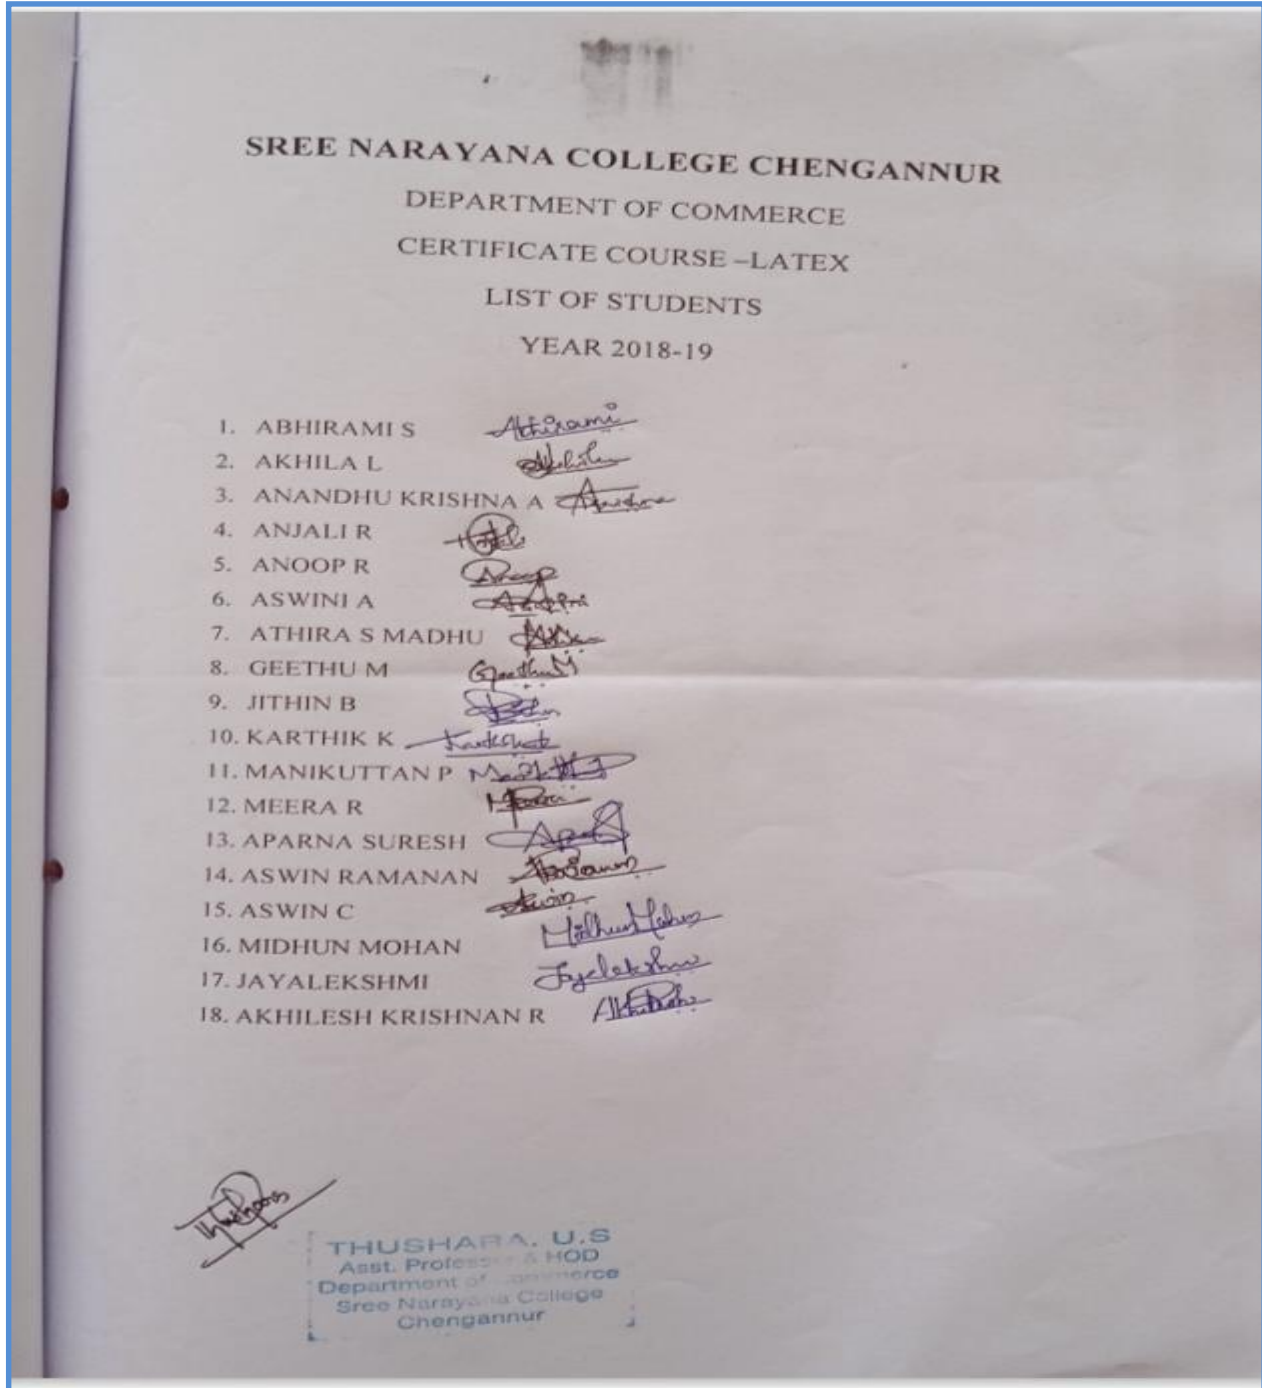 SREE NARAYANA COLLEGE CHENGANNUR
DEPARTMENT OF COMMERCE
CERTIFICATE COURSE –LATEX
LIST OF STUDENTS
YEAR 2018-19
1. ABHIRAMI S Abhirami
2. AKHILA L
3. ANANDHU KRISHNA A
4. ANJALI R
5. ANOOP R Anoop
6. ASWINI A
7. ATHIRA S MADHU
8. GEETHU M Geethu M
9. JITHIN B
10. KARTHIK K
11. MANIKUTTAN P
12. MEERA R
13. APARNA SURESH
14. ASWIN RAMANAN
15. ASWIN C Aswin
16. MIDHUN MOHAN Midhun Mohan
17. JAYALEKSHMI Jayalekshmi
18. AKHILESH KRISHNAN R
THUSHARA. U.S
Asst. Professor & HOD
Department of Commerce
Sree Narayana College
Chengannur